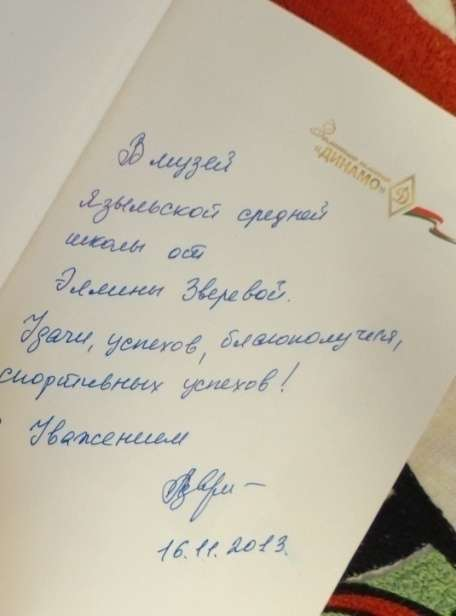 «ДИНАМО»
В музей
Языльской средней
школы от
Эллины Зверевой.
Удачи, успехов, благополучия,
спортивных успехов!
Уважением
16.11.2013.